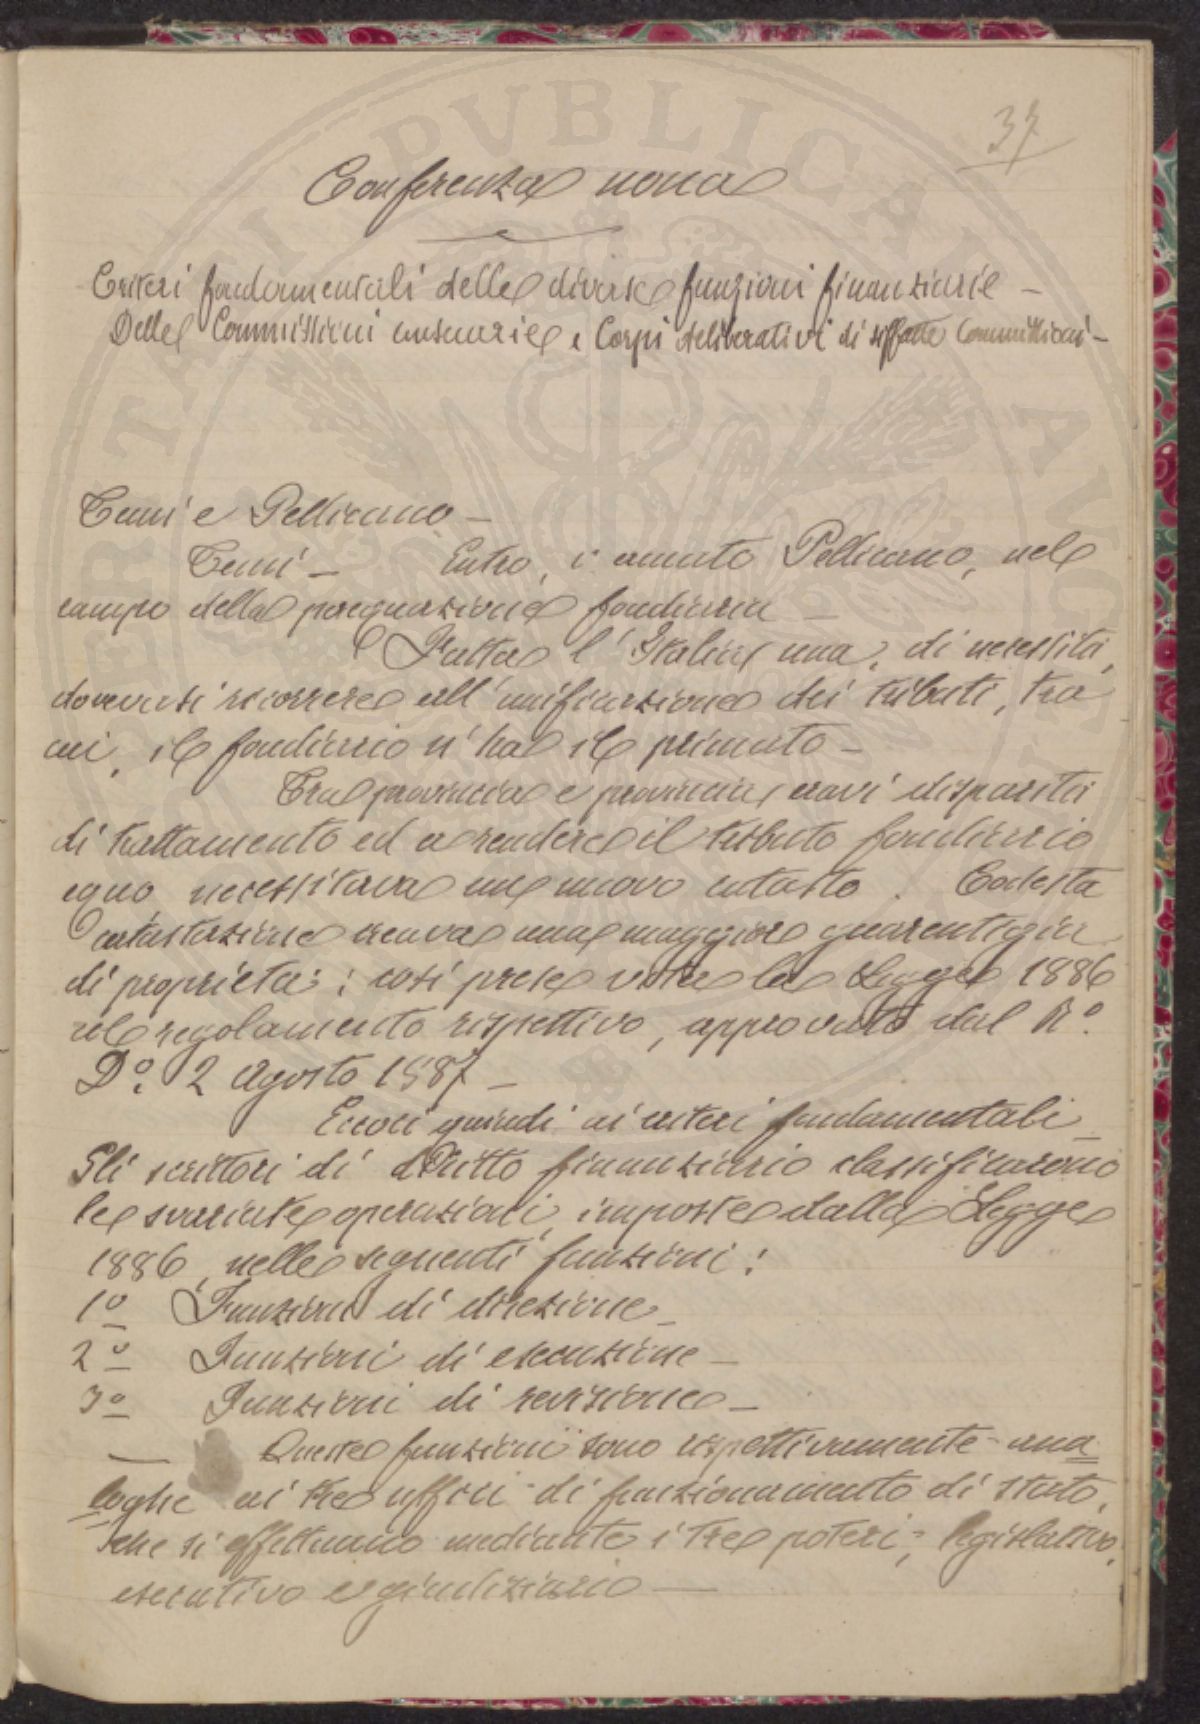 37
Conferenza nona
Criteri fondamentali delle diverse funzioni finanziarie –
Delle Commissioni censuarie e Corpi deliberativi di siffatte Commissioni –
Temi e Pellicano –
Temi – Entro, amato Pellicano, nel
campo della perequazione fondiaria –
Fatta l'Italia una, di necessità,
dovevasi ricorrere all'unificazione dei tributi, tra
cui, il fondiario n'ha il primato –
Tra provincia e provincia, eravi disparità
di trattamento ed a rendere il tributo fondiario
equo necessitava un nuovo catasto. Codesta
catastazione creava una maggiore guarentigia
di proprietà: così prese vita la Legge 1886
col regolamento rispettivo, approvato dal R.º
D.º 2 Agosto 1887 –
Eccoci quindi ai criteri fondamentali –
Gli scrittori di diritto finanziario classificarono
le svariate operazioni, imposte dalla Legge
1886, nelle seguenti funzioni:
1º Funzioni di direzione –
2º Funzioni di esecuzione –
3º Funzioni di revisione –
— Queste funzioni sono rispettivamente ana
loghe ai tre uffici di funzionamento di stato,
che si effettuano mediante i tre poteri; legislativo,
esecutivo e giudiziario —
PVBLICAE